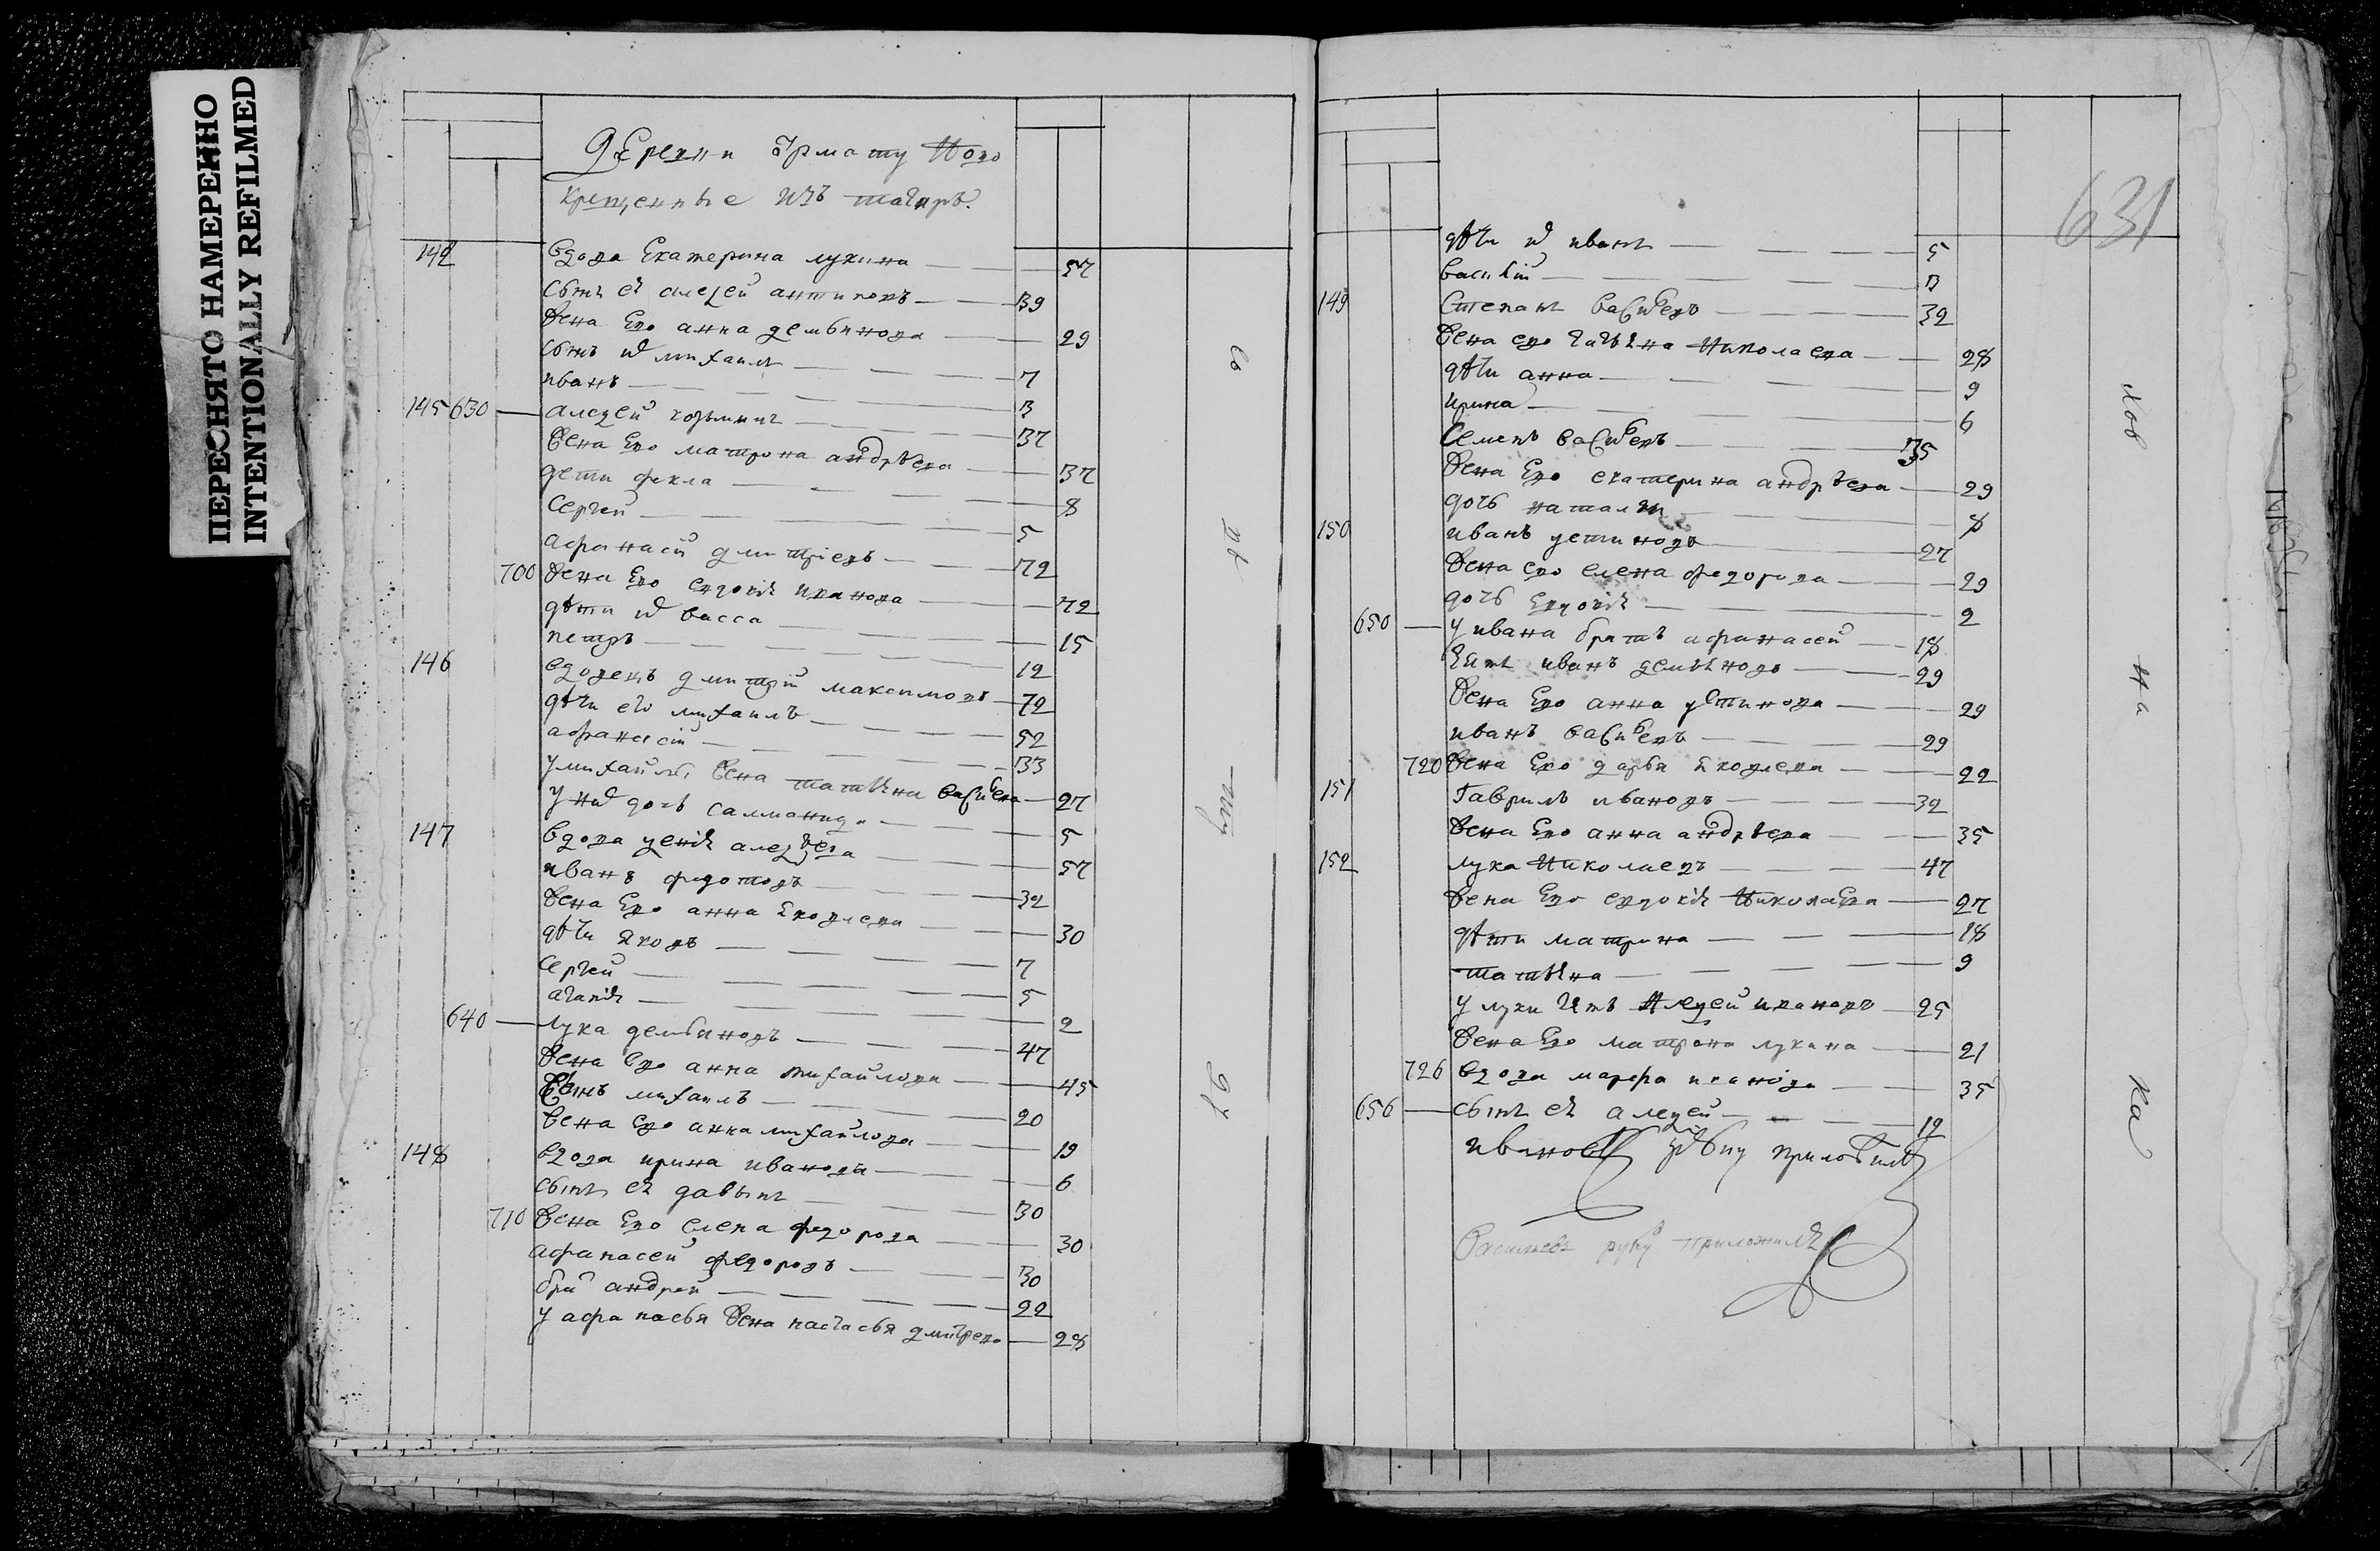 ПЕРЕСНЯТО НАМЕРЕННО
INTENTIONALLY REFILMED
деревни Ярмату Ново
крещенные изъ татаръ
142 вдова Екатерина лукина 57
сынъ ея алеѯей антиповъ 39
Жена Его анна дементьева 29
сынъ их михаилъ 7
иванъ 3
145 630 алеѯей козьминъ 37
Жена Его матрона андрѣева 37
дети фекла 8
Сергей 5
афонасей дмитріевъ 72
700 Жена Его евдокія иванова 72
дѣти их васса 15
петръ 12
146 вдовецъ дмитрій максимовъ 72
дѣти его михаилъ 52
афанасій 33
у михайлы Жена татьяна васильева 27
у них дочь саломанида 5
147 вдова ѯенія алеѯѣева 57
иванъ федотовъ 32
Жена Его анна Яковлева 30
дѣти Яковъ 7
Сергей 5
агапія 2
640 лука дементьевъ 47
Жена Его анна михайлова 45
Сынъ михаилъ 20
Жена Его анна михайлова 19
148 вдова ирина иванова 6
сынъ ея давыдъ 30
710 Жена Его елена федорова 30
афанасей федоровъ 30
братъ андрей 22
у афанасья Жена настасья дмитрева 28
631
дѣти их иванъ 5
василій 3
149 Степанъ васильевъ 32
Жена его татьяна Николаева 28
дѣти анна 9
ирина 6
Семенъ васильевъ 35
Жена Его екатерина андрѣева 29
дочь наталья 8
150 иванъ устиновъ 27
Жена его елена федорова 29
дочь Евдокія 2
650 у ивана братъ афанасей 18
зять иванъ дементьевъ 29
Жена Его анна устинова 29
иванъ васильевъ 29
720 Жена Его дарья Яковлева 22
151 Гаврилъ ивановъ 32
Жена Его анна андрѣева 35
152 лука Николаевъ 47
Жена Его евдокія Николаева 27
дѣти матрона 18
татьяна 9
у луки зять Алеѯей ивановъ 25
Жена Его матрона лукина 21
726 вдова марфа иванова 35
656 сынъ ея алеѯей 12
ивановъ руку приложилъ
Васильевъ руку приложилъ